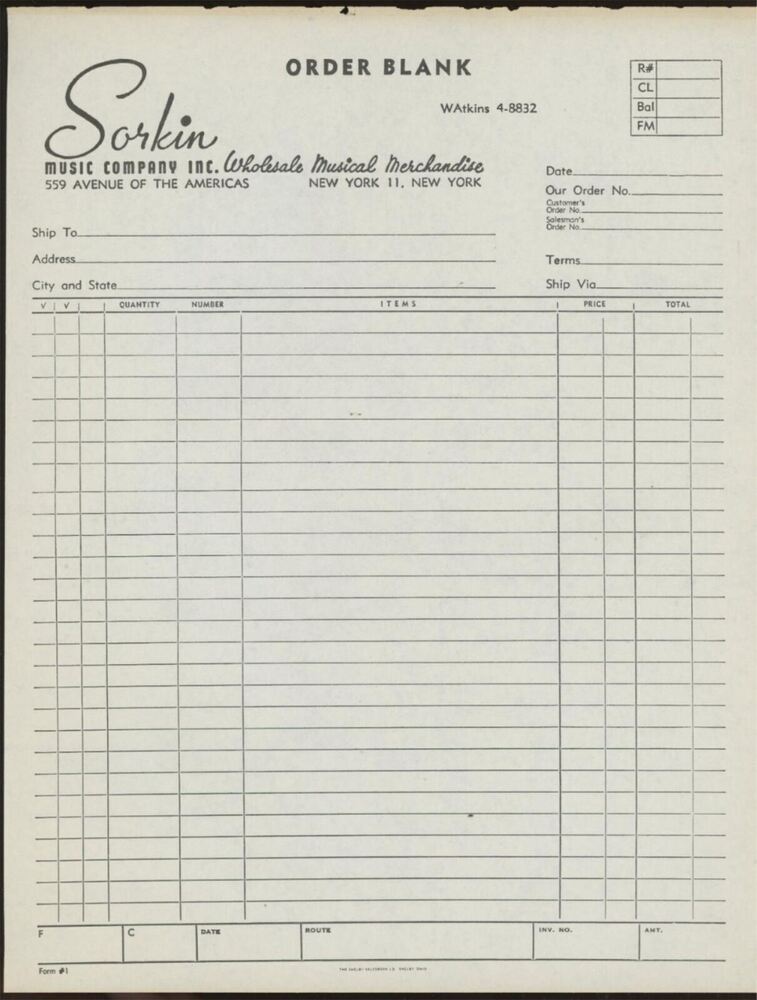 ORDER BLANK
R#
CL
Bal
FM
WAtkins 4-8832
Sorkin
MUSIC COMPANY INC. Wholesale Musical Merchandise
559 AVENUE OF THE AMERICAS NEW YORK 11, NEW YORK
Date
Our Order No.
Customer's
Order No.
Salesman's
Order No.
Ship To
Address
Terms
City and State
Ship Via
V V QUANTITY NUMBER ITEMS PRICE TOTAL
F C DATE ROUTE INV. NO. AMT.
Form #1
THE SHELBY SALESBOOK CO. SHELBY OHIO